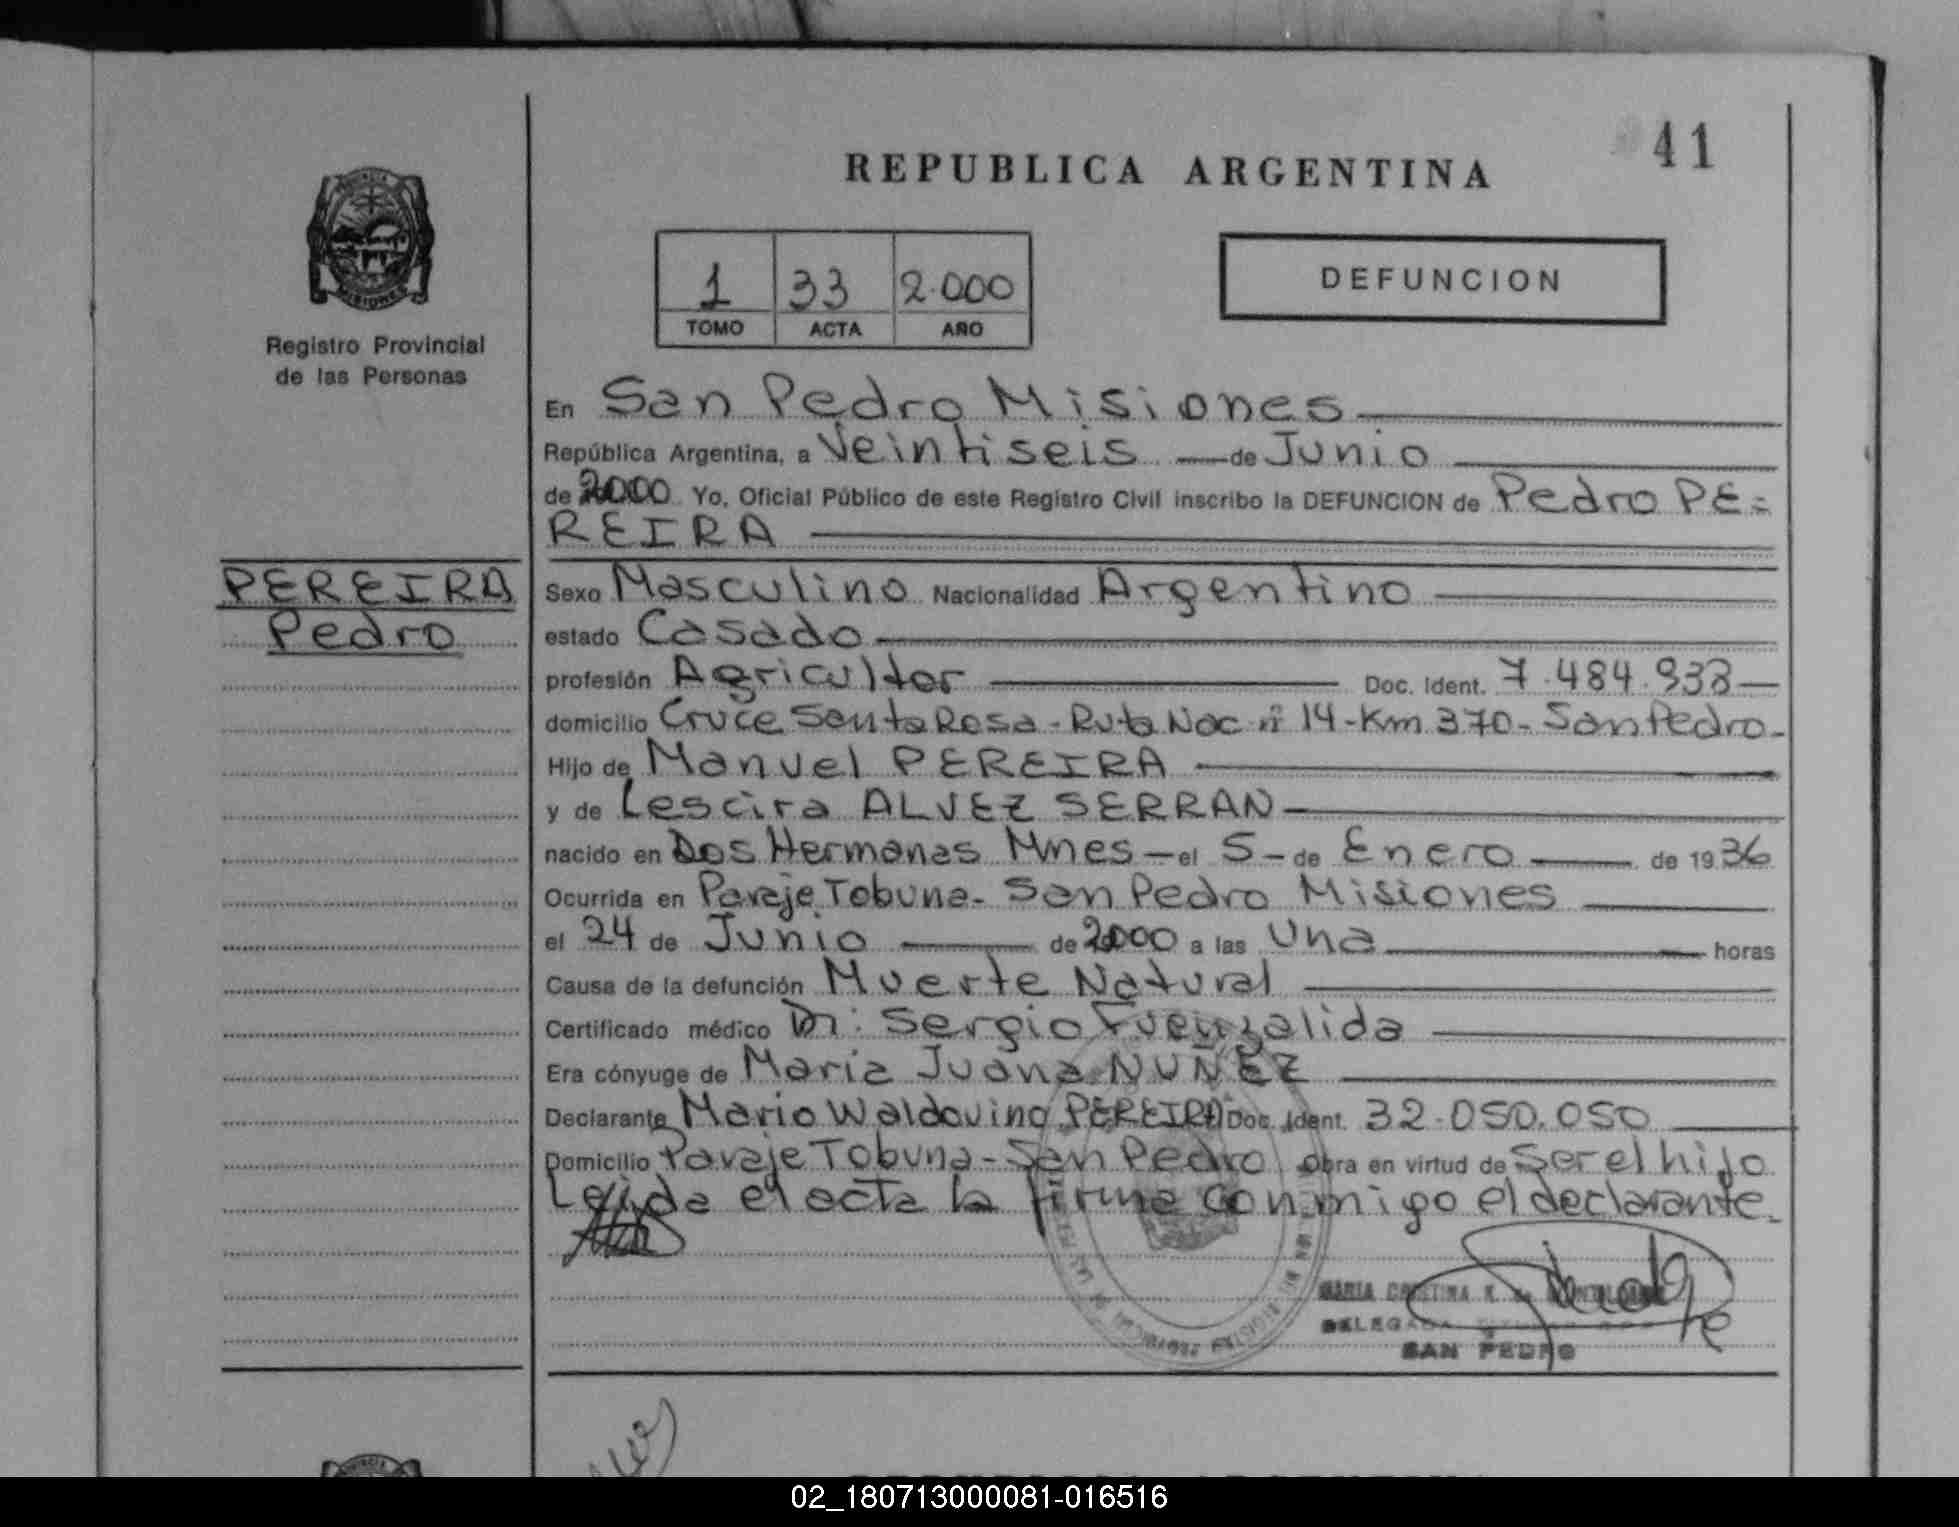 41
REPUBLICA ARGENTINA
PROVINCIA DE
MISIONES
Registro Provincial
de las Personas
1 33 2.000
TOMO ACTA AÑO
DEFUNCION
En San Pedro Misiones
República Argentina, a Veintiseis de Junio
de 2000 Yo, Oficial Público de este Registro Civil inscribo la DEFUNCION de Pedro PE=
REIRA
PEREIRA
Pedro
Sexo Masculino Nacionalidad Argentino
estado Casado
profesión Agricultor Doc. Ident. 7.484.938
domicilio Cruce Santa Rosa - Ruta Nac nº 14 - Km 370 - San Pedro -
Hijo de Manuel PEREIRA
y de Lescira ALVEZ SERRAN
nacido en Dos Hermanas Mnes - el 5 - de Enero de 1936
Ocurrida en Paraje Tobuna - San Pedro Misiones
el 24 de Junio de 2000 a las Una horas
Causa de la defunción Muerte Natural
Certificado médico Dr: Sergio Fuenzalida
Era cónyuge de Maria Juana NUÑEZ
Declarante Mario Waldovino PEREIRA Doc. Ident. 32.050.050
Domicilio Paraje Tobuna - San Pedro obra en virtud de Ser el hijo
Leida el acta la firma conmigo el declarante -
MARIA CRISTINA N. de
DELEGADA TITULAR
SAN PEDRO
02_180713000081-016516